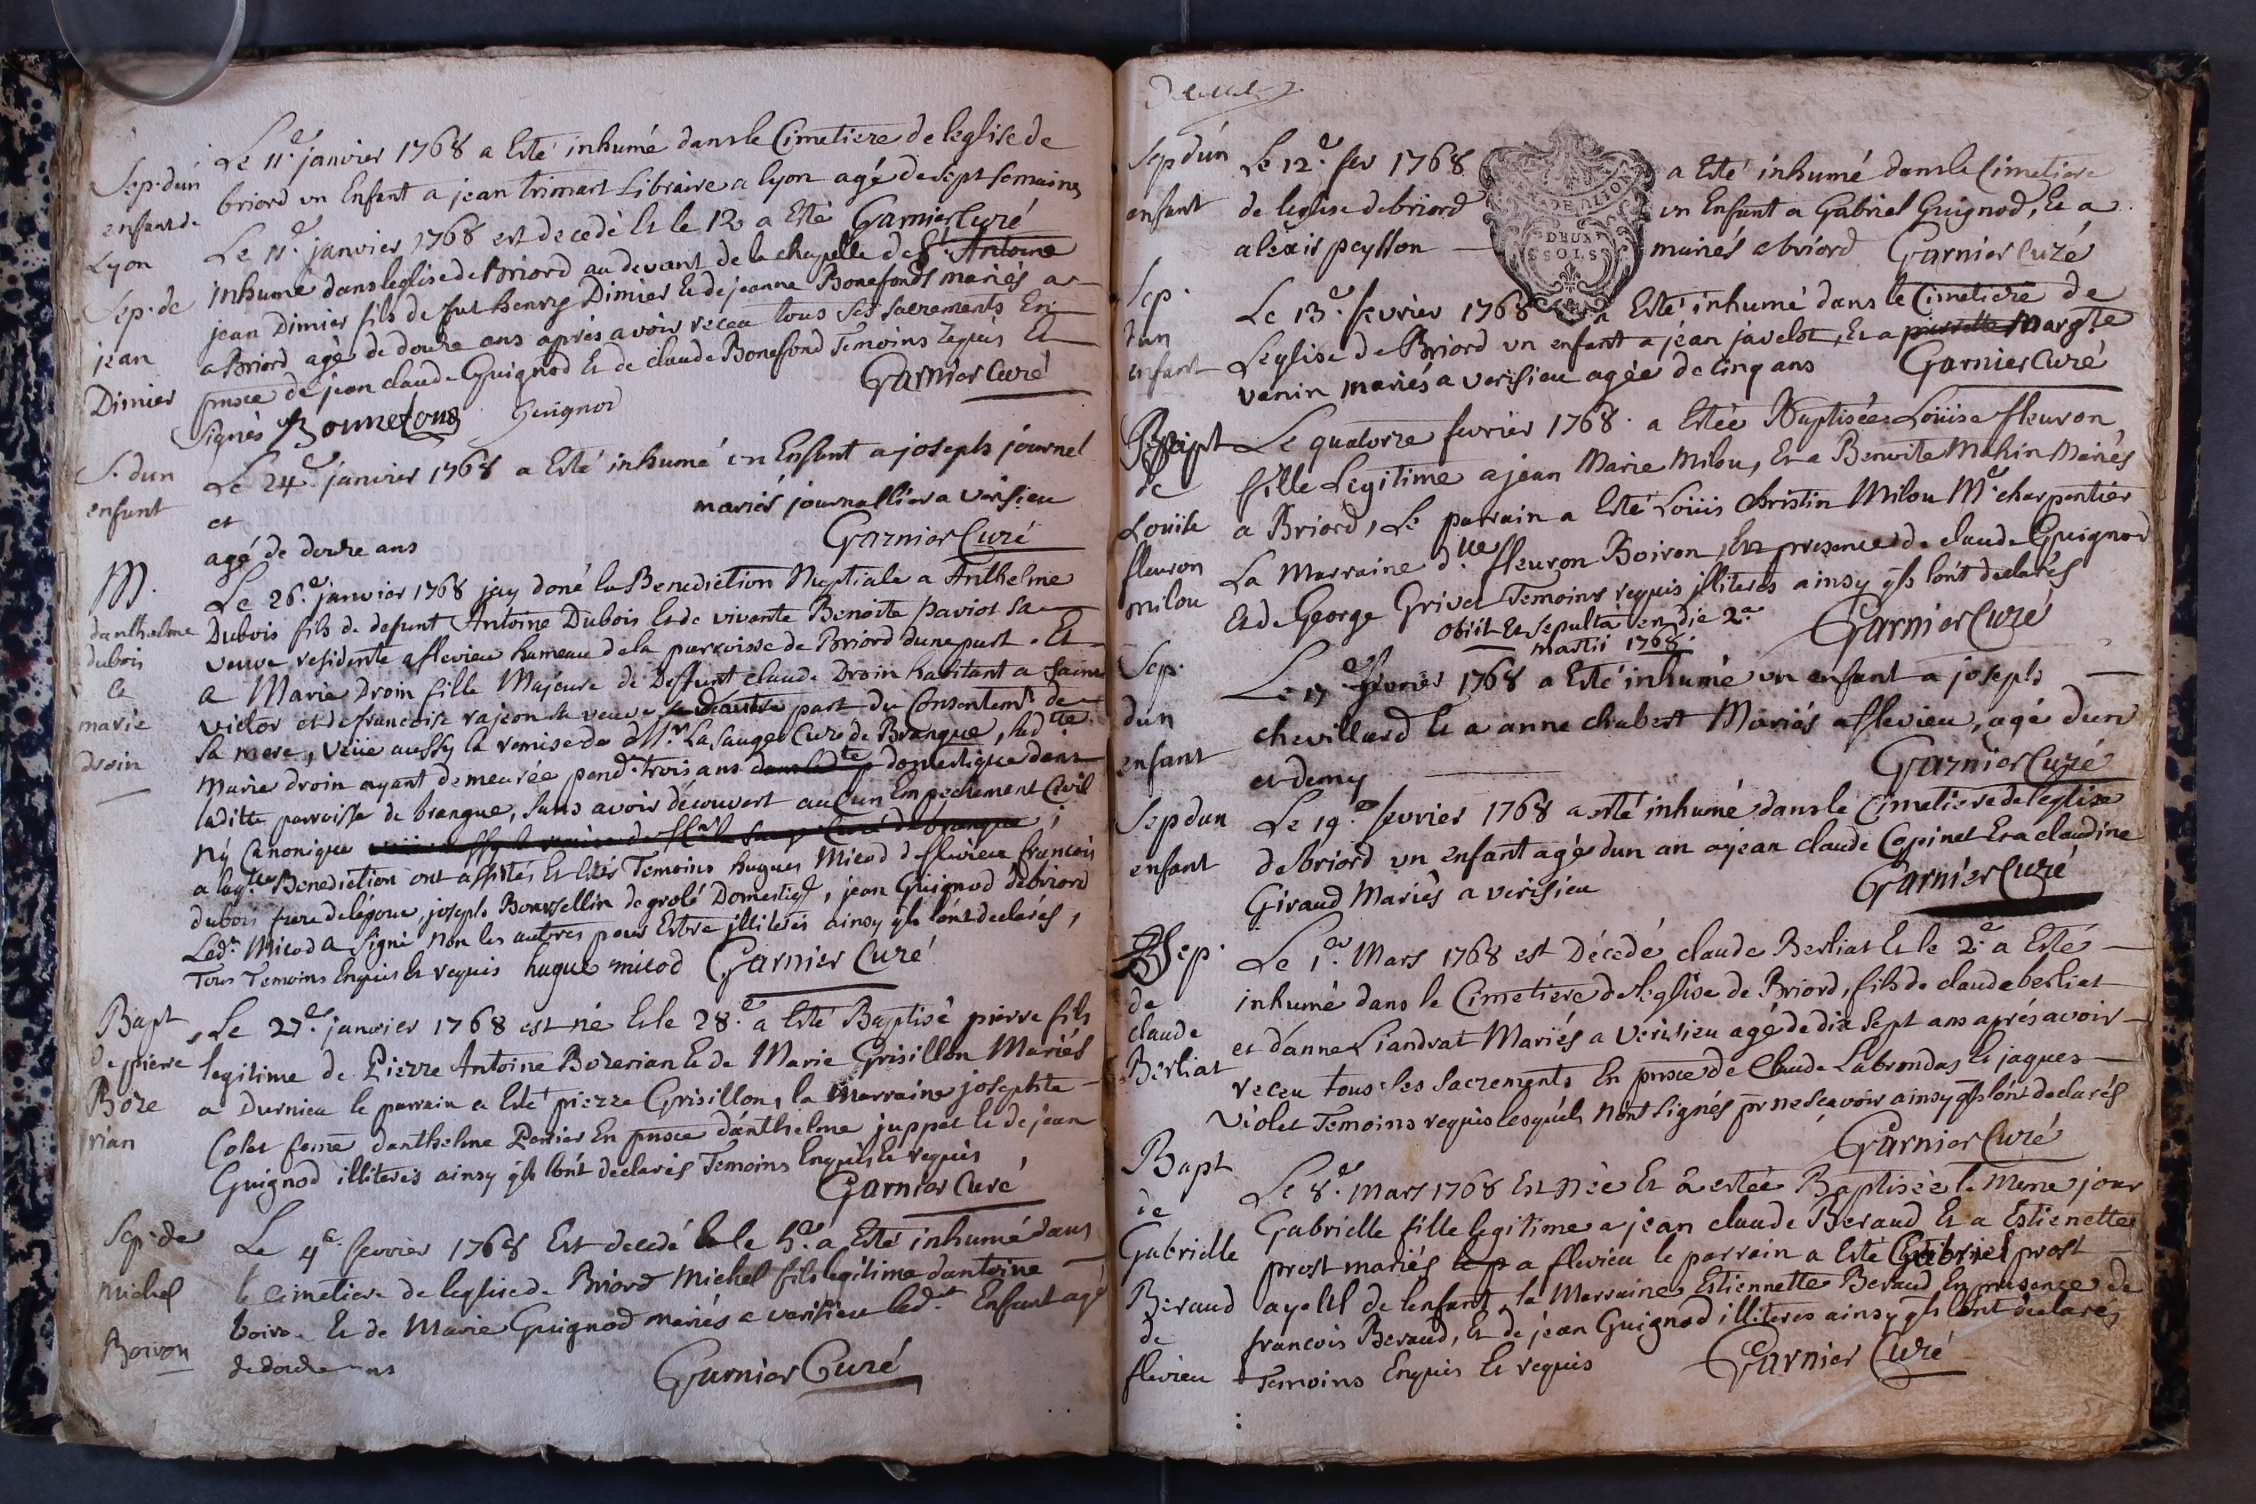 Sep. dun
enfant de
Lyon
Le 11.e janvier 1768 a Esté inhumé dans le Cimetiere de leglise de
briord un Enfant a jean trimart Libraire a lyon agé de sept semaines
Garnier Curé
Sep. de
jean
Dimier
Le 11.e janvier 1768 est decedé Et le 12 a Esté
inhumé dans leglise de Briord au devant de la chapelle de St Antoine
jean Dimier fils de fut henry Dimier Et de jeanne Bonefond mariés a
a Briord agé de douze ans aprés avoir receu tous ses sacrements En
prnsce de jean claude Guignod Et de claude Bonefond Temoins requis Et
Signés Bonnefons Guignod Garnier Curé
S. dun
enfant
Le 24.e janvier 1768 a Esté inhumé un Enfant a joseph journel
et mariés journalliers a verisieu
agé de douze ans Garnier Curé
M.
danthelme
dubois
Et
marie
droin
Le 26.e janvier 1768 jay doné la Benediction Nuptiale a Anthelme
Dubois fils de defunt Antoine Dubois Et de vivante Benoite paviot sa
veuve residente a flevieu hameau de la parroisse de Briord dune part. Et
a Marie Droin fille Majeure de Deffunt claude Droin habitant a Saint
victor et de francoise rajeon sa veuve dautre part du Consentemt de
sa mere, veüe aussy la remise de Mr. La sauge Curé de Brangue, lad.tte
Marie droin ayant demeurée pend.t trois ans domestique dans
laditte parroisse de brangue, sans avoir découvert aucun Empechement Civil
ny Canonique
a laq.lle Benediction ont assistés Et Estés Temoins hugues Micod de flevieu francois
dubois frere de lépoux, joseph Boursellin de grolé Domestiq, jean Guignod de briord
Led.t Micod a signé non les autres pour Estre illiterés ainsy qls lont declarés,
Tous Temoins Enquis Et requis hugue micod Garnier Curé
Bapt
de pierre
Boze
rian
Le 27.e janvier 1768 est né Et le 28.e a Esté Baptisé pierre fils
legitime de Pierre Antoine Bozerian Et de Marie Grisillon Mariés
a Durnieu le parrain a Esté pierre Grisillon, la Marraine josephte
Colet feme danthelme Perrier En prnsce danthelme juppet Et de jean
Guignod illiterés ainsy qls lont declarés Temoins Enquis Et requis
Garnier Curé
Sep. de
michel
Boiron
Le 4.e fevrier 1768 Est decedé Et le 5.e a Esté inhumé dans
le cimetiere de leglise de Briord Michel fils legitime dantoine
boiron Et de Marie Guignod mariés a verisieu led.it Enfant agé
de douze ans Garnier Curé
Deux
Sep dun
enfant
Le 12.e fev 1768 a Esté inhumé dans le Cimetiere
de leglise de briord un Enfant a Gabriel Guignod, Et a
alexis peysson mariés a briord Garnier Curé
DEUX
SOLS
Sep.
dun
enfant
Le 13.e fevrier 1768 a Esté inhumé dans le Cimetiere de
Leglise de Briord un enfant a jean javelot, Et a pierrette Marg.te
venin mariés a verisieu agée de cinq ans Garnier Curé
Bapt
de
Louise
fleuron
milou
Le quatorze fevrier 1768. a Estée Baptisée Loüise fleuron,
fille Legitime a jean Marie Milou, Et a Benoite Makin Mariés
a Briord, Le parrain a Esté Loüis Christin Milou M.e charpentier
La Marraine d.lle fleuron Boiron, En presence de claude Guignod
Et de George Grivet Temoins requis illiterés ainsy qls lont declarés
obiit Et sepulta en die 2.a
martii 1768. Garnier Curé
Sep.
dun
enfant
Le 17.e fevrier 1768 a Esté inhumé un enfant a joseph
chevillard Et a anne chabert Mariés a flevieu, agé dun
et demy Garnier Curé
Sep dun
enfant
Le 19.e fevrier 1768 a esté inhumé dans le Cimetiere de leglise
de briord un enfant agé dun an a jean claude Copinet Et a claudine
Giraud Mariés a verisieu Garnier Curé
Sep.
de
claude
Berliat
Le 1.er Mars 1768 est Décedé claude Berliat Et le 2.e a Esté
inhumé dans le Cimetiere de leglise de Briord, fils de claude berliat
et danne Liandrat Mariés a verisieu agé de dix sept ans aprés avoir
receu tous les sacrements En prnsce de Claude Labrondas Et jaques
violet Temoins requis lesquels nont signés pr ne scavoir ainsy qls lont declarés
Garnier Curé
Bapt
de
Gabrielle
Beraud
de
flevieu
Le 8.e Mars 1768 Est Née Et a estée Baptisée le Meme jour
Gabrielle fille legitime a jean claude Beraud Et a Estienette
prost mariés a flevieu le parrain a Esté Gabriel prost
ayeul de lenfant, la Marraine Estiennette Beraud En presence de
francois Beraud, Et de jean Guignod illiterés ainsy qls lont declarés
Temoins Enquis Et requis Garnier Curé